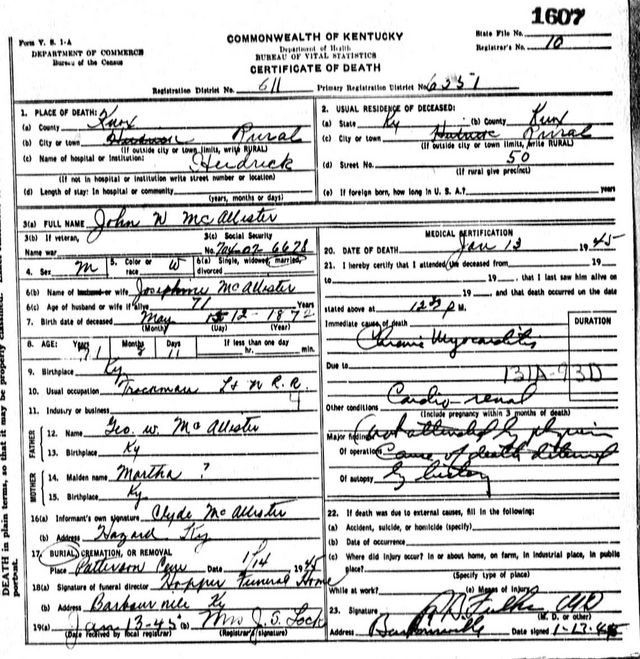 1607
Form V. S. 1-A
DEPARTMENT OF COMMERCE
Bureau of the Census
COMMONWEALTH OF KENTUCKY
Department of Health
BUREAU OF VITAL STATISTICS
CERTIFICATE OF DEATH
State File No.
Registrar's No. 10
Registration District No. 611 Primary Registration District No. 6357
1. PLACE OF DEATH:
(a) County Knox
(b) City or town Rural
(If outside city or town limits, write RURAL)
(c) Name of hospital or institution:
(If not in hospital or institution write street number or location)
(d) Length of stay: In hospital or community
(years, months or days)
2. USUAL RESIDENCE OF DECEASED:
(a) State Ky (b) County Knox
(c) City or town Rural
(If outside city or town limits, write RURAL)
(d) Street No. 50
(If rural give precinct)
(e) If foreign born, how long in U. S. A.? years
3(a) FULL NAME John W McAllister
3(b) If veteran,
Name war
3(c) Social Security
No.
4. Sex M 5. Color or race W 6(a) Single, widowed, married, divorced
6(b) Name of husband or wife Josephine McAllister
6(c) Age of husband or wife if alive 71 Years
7. Birth date of deceased May 12 - 1872
(Month) (Day) (Year)
8. AGE: Years Months Days If less than one day
11 hr. min.
9. Birthplace Ky
10. Usual occupation Trackman L & N R.R.
11. Industry or business
FATHER
12. Name Geo. W. McAllister
13. Birthplace Ky
MOTHER
14. Maiden name Martha ?
15. Birthplace Ky
16(a) Informant's own signature Clyde McAllister
(b) Address Hazard Ky
17. BURIAL, CREMATION, OR REMOVAL
Place Patterson Cem Date 1/14 1945
18(a) Signature of funeral director Hopper Funeral Home
(b) Address Barbourville Ky
19(a) Jan 13-45 (b) Mrs J. S. Lock
(Date received by local registrar) (Registrar's signature)
MEDICAL CERTIFICATION
20. DATE OF DEATH Jan 13 1945
21. I hereby certify that I attended the deceased from 19
to 19 , that I last saw him alive on
19 and that death occurred on the date
stated above at 12 P M.
Immediate cause of death DURATION
Chronic Myocarditis
Due to 131A-93D
Cardio-renal
Other conditions
(Include pregnancy within 3 months of death)
Major findings: not attended by physician
Of operations Cause of death determined
Of autopsy by history
22. If death was due to external causes, fill in the following:
(a) Accident, suicide, or homicide (specify)
(b) Date of occurrence
(c) Where did injury occur? In or about home, on farm, in industrial place, in public
place?
(Specify type of place)
While at work? (e) Means of injury
23. Signature MD
(M. D. or other)
Address Barbourville Date signed 1-13-45
DEATH in plain terms, so that it may be properly classified.